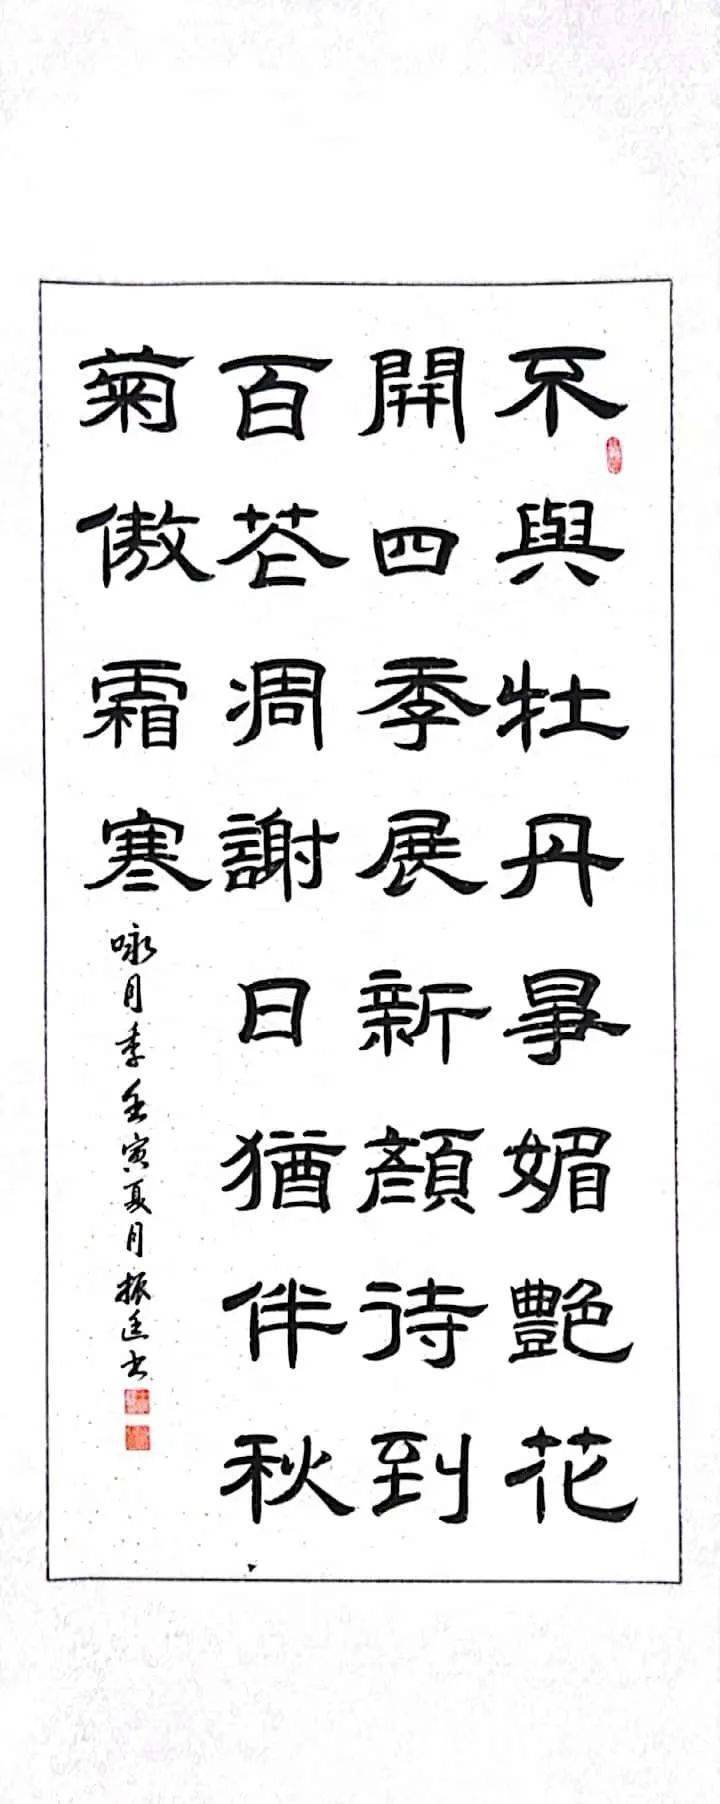 不與牡丹爭媚艷花
開四季展新顏待到
百花凋謝日猶伴秋
菊傲霜寒
咏月季壬寅夏月振廷书